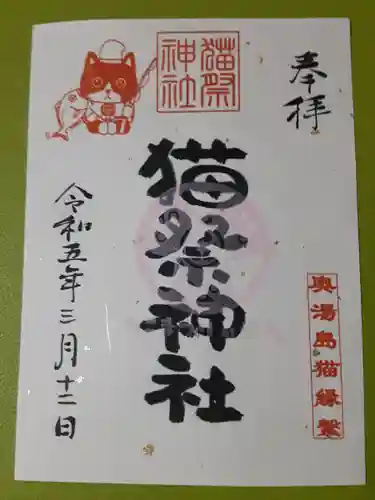 奉拝
猫祭
神社
猫祭神社
奥湯島猫縁繫
令和五年三月十二日